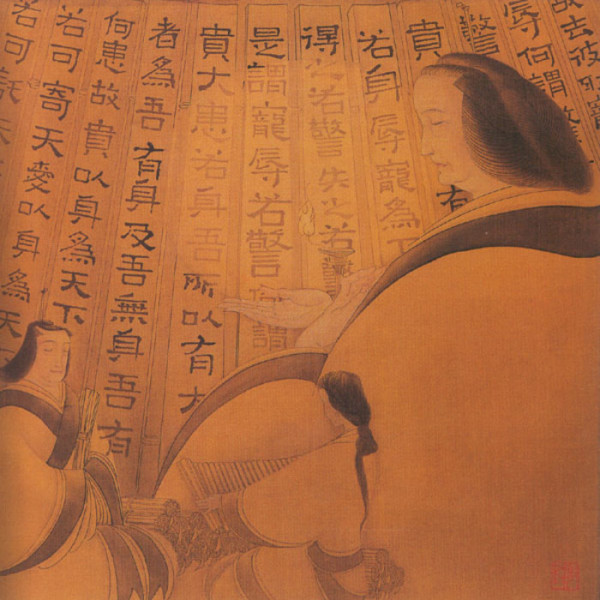 故去彼
辱何謂
警
貴
有
若身辱寵為下
得之若警失之若
是謂寵辱若警何謂
貴大患若身吾所以有大
者為吾有身及吾無身吾有
何患故貴以身為天下
若可寄天愛以身為天
若可託天